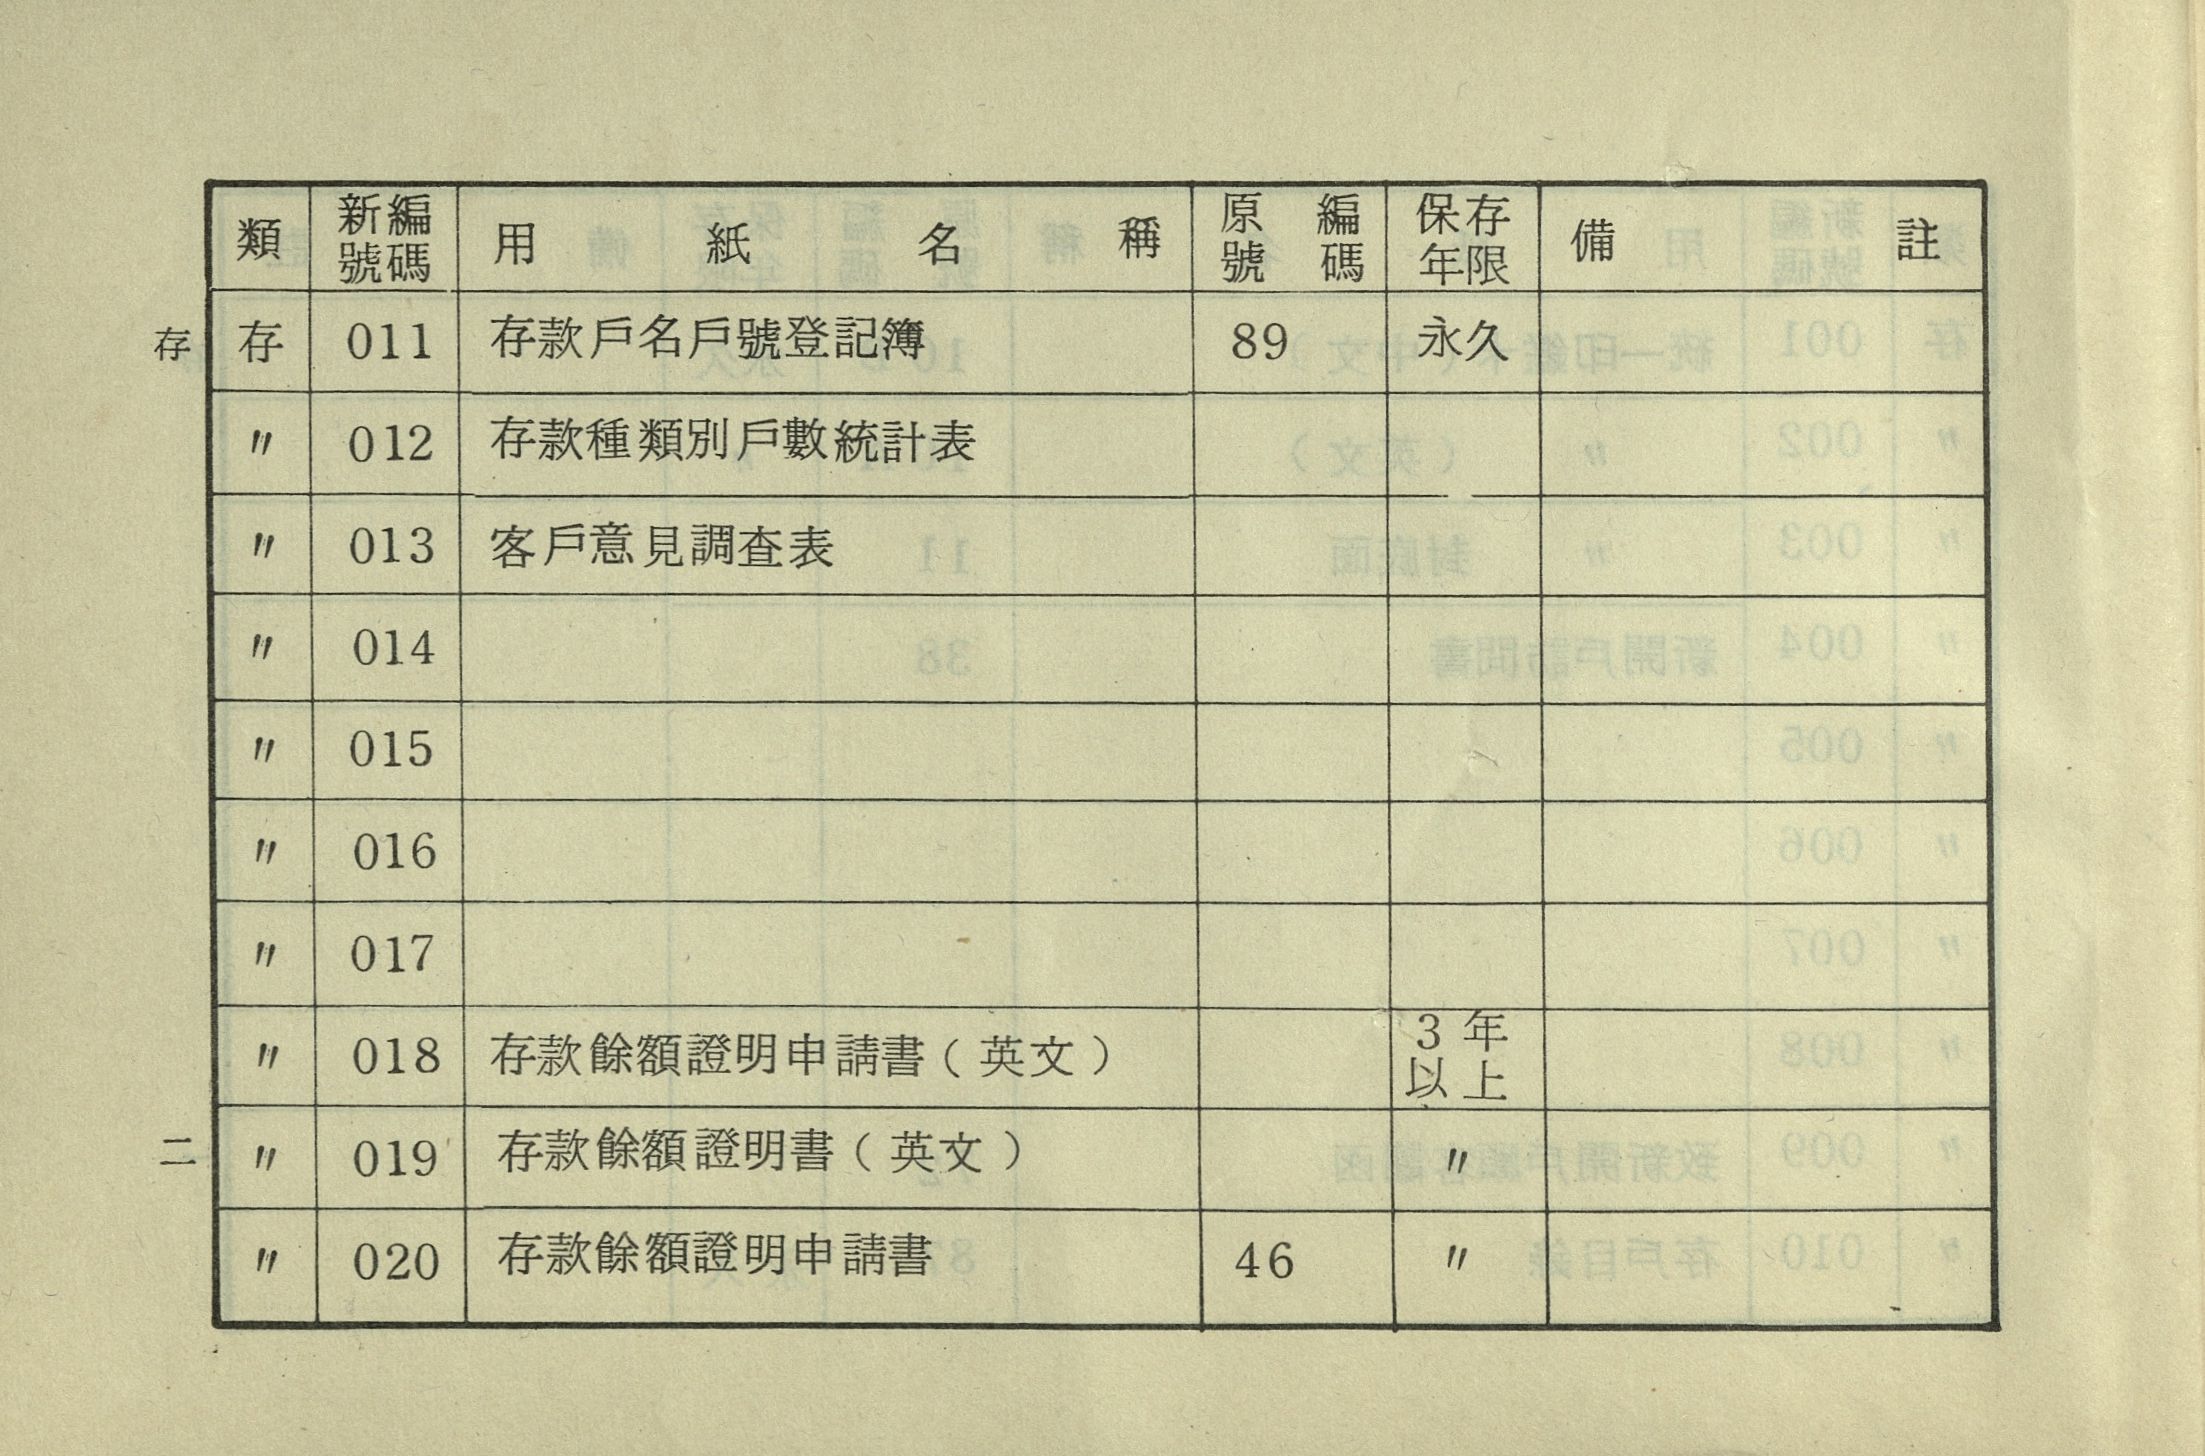 類 新編號碼 用紙名稱 原編號碼 保存年限 備註
存 存 011 存款戶名戶號登記簿 89 永久
〃 012 存款種類別戶數統計表
〃 013 客戶意見調查表
〃 014
〃 015
〃 016
〃 017
〃 018 存款餘額證明申請書（英文） 3年以上
二 〃 019 存款餘額證明書（英文） 〃
〃 020 存款餘額證明申請書 46 〃